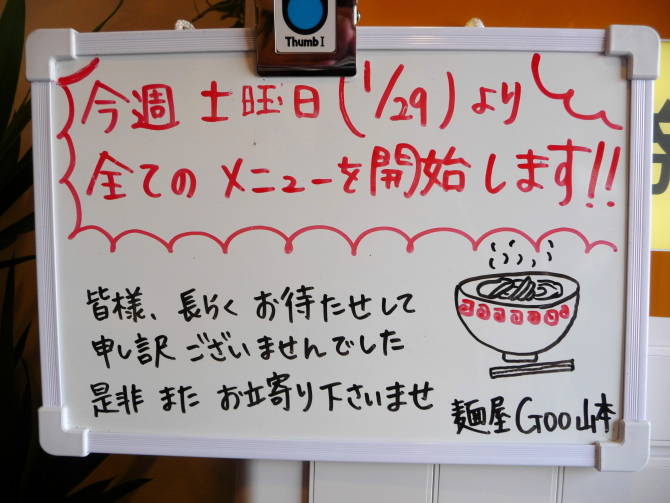 Thumb I
今週 土曜日(1/29)より
全てのメニューを開始します!!
皆様、長らく お待たせして
申し訳ございませんでした
是非 また お立寄り下さいませ
麺屋Goo山本